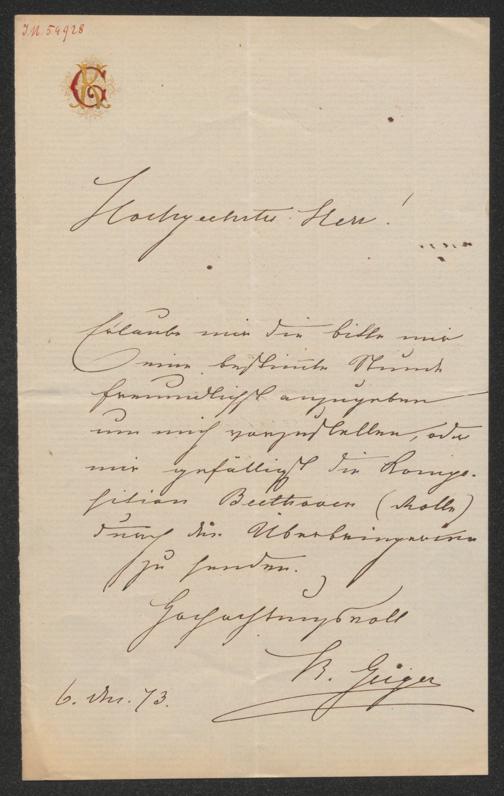 I.N. 54928
Hochgeehrter Herr!
Erlaube mir die bitte mir
eine bestimte Stunde
freundlichst anzugeben
um mich vorzustellen, oder
mir gefälligst die Kompo-
sition Beethoven (Rolle)
durch die Überbringerinn
zu senden.
Hochachtungsvoll
K. Geiger
6. 73.